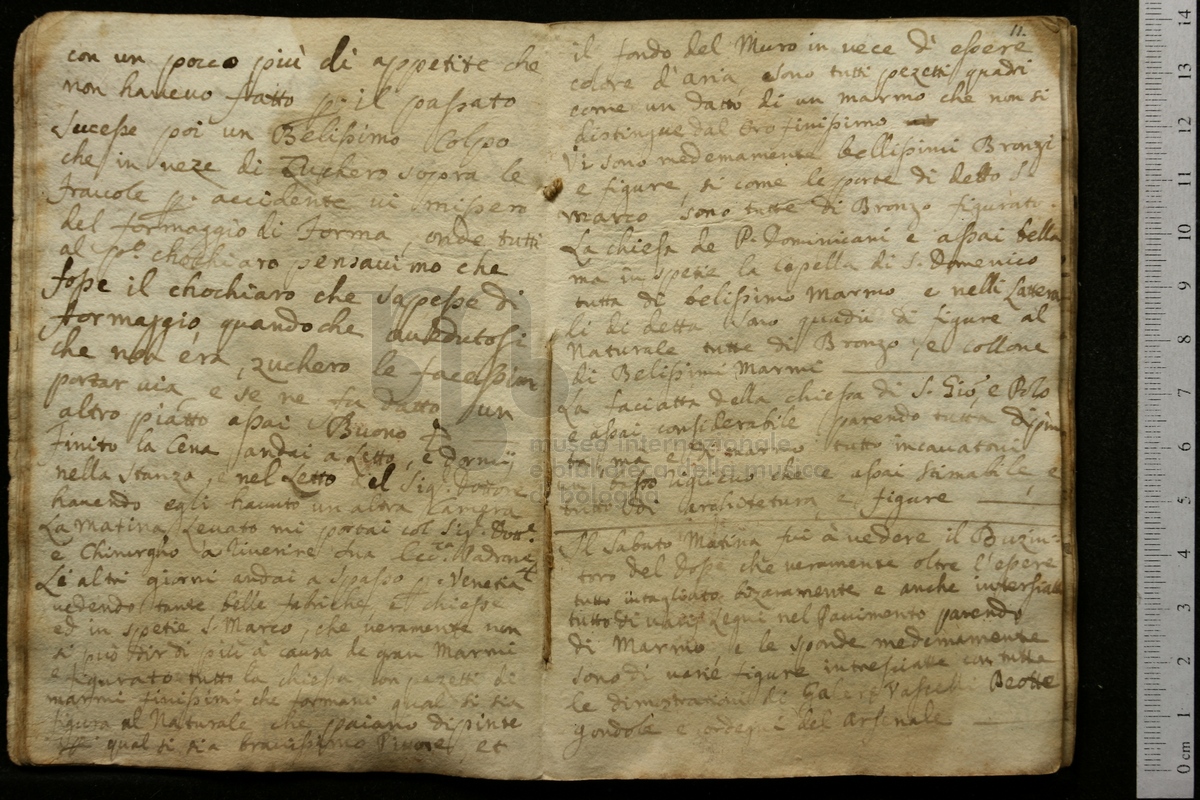 con un pocco più di appetite che
non havevo fatto p. il passato
Sucesse poi un Belissimo Colpo
che in veze di Zuchero sopra le
fravole p. accidente vi misero
del formaggio di Forma, onde tutti
al po. chochiaro pensavimo che
fosse il chochiaro che sapesse di
formaggio, quandoche avedutosi
che non era zuchero le facessimo
portar via e se ne fu datto un
altro piatto assai Buono
Finito la Cena andai a Letto, e dormij
nella Stanza, e nel Letto del Sig. Dottore
havendo egli havuto un altra
La Matina Levato mi portai col Sig. Dott.e
e Chirurgho a riverire Sua Ecc. Padrone
Li altri giorni andai a Spasso p. Venetia
vedendo tante belle fabriche, et chiesse
ed in spetie S. Marco, che veramente non
si può dir di più a causa de gran Marmi
e figurato tutto la chiesa con pazetti di
marmi finissimi che formano qual si sia
figura al Naturale che paiano dipinte
qual si sia bravissimo Pitore et
11.
il fondo del Muro in vece d'essere
colore d'aria sono tutti pezetti quadri
come un datto di un marmo che non si
distingue dal Oro finissimo
Vi sono medemamente bellissimi Bronzi
e figure, si come le porte di detto S.
Marco sono tutte di Bronzo figurate.
La chiesa de P. Dominicani e assai bella
ma in spetie la capella di S. Domenico
tutta di belissimo Marmo e nelli Latera
li di detta sono quadri di figure al
Naturale tutte di Bronzo, e collone
di Belissimi Marmi
La faciatta della chiesa di S. Gio, e Polo
e assai considerabile parendo tutta dipin
ta, ma e di marmo tutto incavato
di basso rilievo che e assai stimabile, e
tutto di architetura, e figure
Il Sabato Matina fui à vedere il Buzin-
toro del Dose che veramente oltre l'essere
tutto intagliato bizaramente e anche intersiato
tutto di varij Legni nel Pavimento parendo
di Marmo e le sponde medemamente
sono di varie figure intresiatte con tutta
le dimostrationi di Galere Vasseli Beotte
gondole e ordegni del Arsenale
museo internazionale
e biblioteca della musica
di bologna
0 cm 1 2 3 4 5 6 7 8 9 10 11 12 13 14